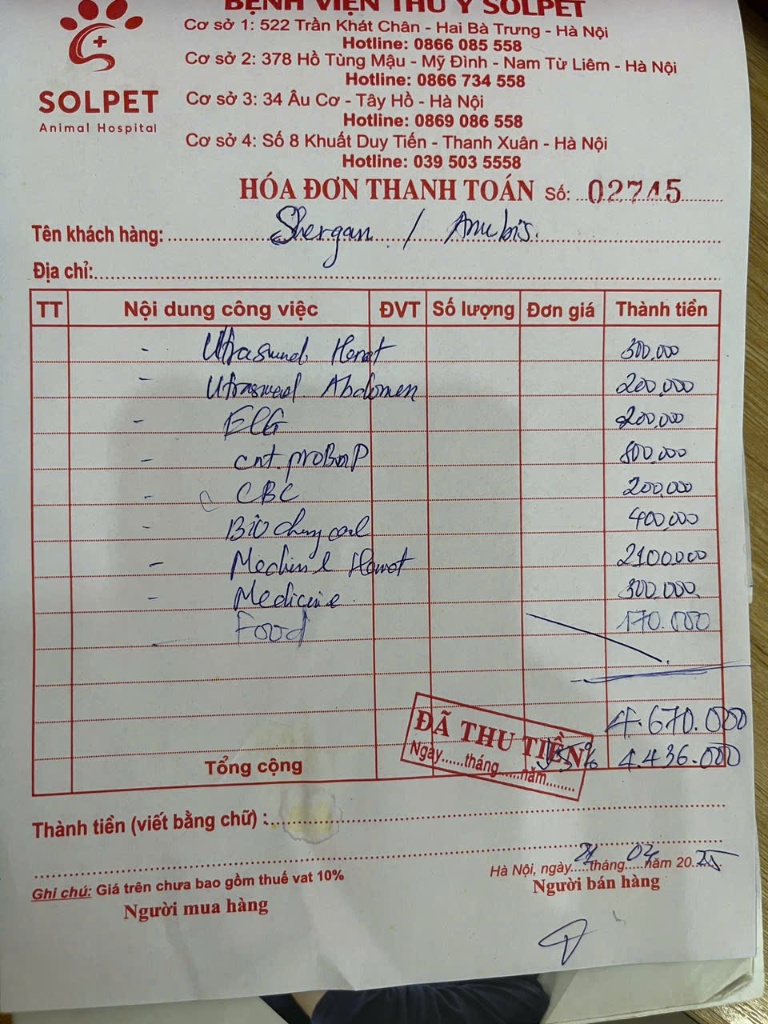 BỆNH VIỆN THÚ Y SOLPET
Cơ sở 1: 522 Trần Khát Chân - Hai Bà Trưng - Hà Nội
Hotline: 0866 085 558
Cơ sở 2: 378 Hồ Tùng Mậu - Mỹ Đình - Nam Từ Liêm - Hà Nội
Hotline: 0866 734 558
Cơ sở 3: 34 Âu Cơ - Tây Hồ - Hà Nội
Hotline: 0869 086 558
Cơ sở 4: Số 8 Khuất Duy Tiến - Thanh Xuân - Hà Nội
Hotline: 039 503 5558
SOLPET
Animal Hospital
HÓA ĐƠN THANH TOÁN Số: 02745
Tên khách hàng: Shergan / Anubis.
Địa chỉ:
TT Nội dung công việc ĐVT Số lượng Đơn giá Thành tiền
- Utrasound 300.000
- Utrasound Abdomen 200,000
- ECG 200,000
- cnt.proBNP 800.000
- CBC 200,000
- 400,000
- 2100000
- Medicine 300.000.
- Food 170.000
4.670.000
ĐÃ THU TIỀN
Ngày......tháng......năm........
Tổng cộng 5% 4.436.000
Thành tiền (viết bằng chữ) :
Hà Nội, ngày 21 tháng 02 năm 2025
Ghi chú: Giá trên chưa bao gồm thuế vat 10%
Người mua hàng Người bán hàng